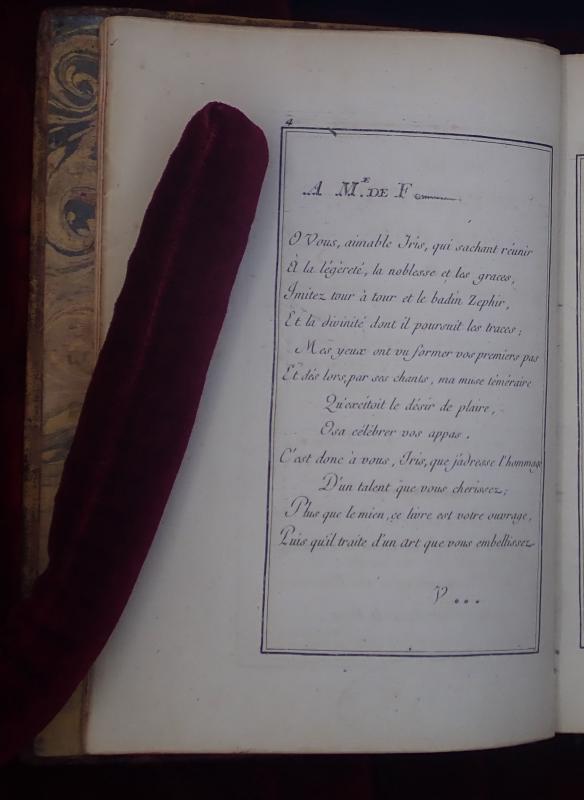 4
A M.E DE F
O Vous, aimable Iris, qui sachant réunir
A la légèreté, la noblesse et les graces,
Imitez tour à tour et le badin Zephir,
Et la divinité dont il poursuit les traces;
Mes yeux ont vu former vos premiers pas
Et dès lors, par ses chants, ma muse téméraire
Qu'excitoit le désir de plaire,
Osa célébrer vos appas.
C'est donc à vous, Iris, que j'adresse l'hommage
D'un talent que vous cherissez;
Plus que le mien, ce livre est votre ouvrage,
Puis qu'il traite d'un art que vous embellissez
V...